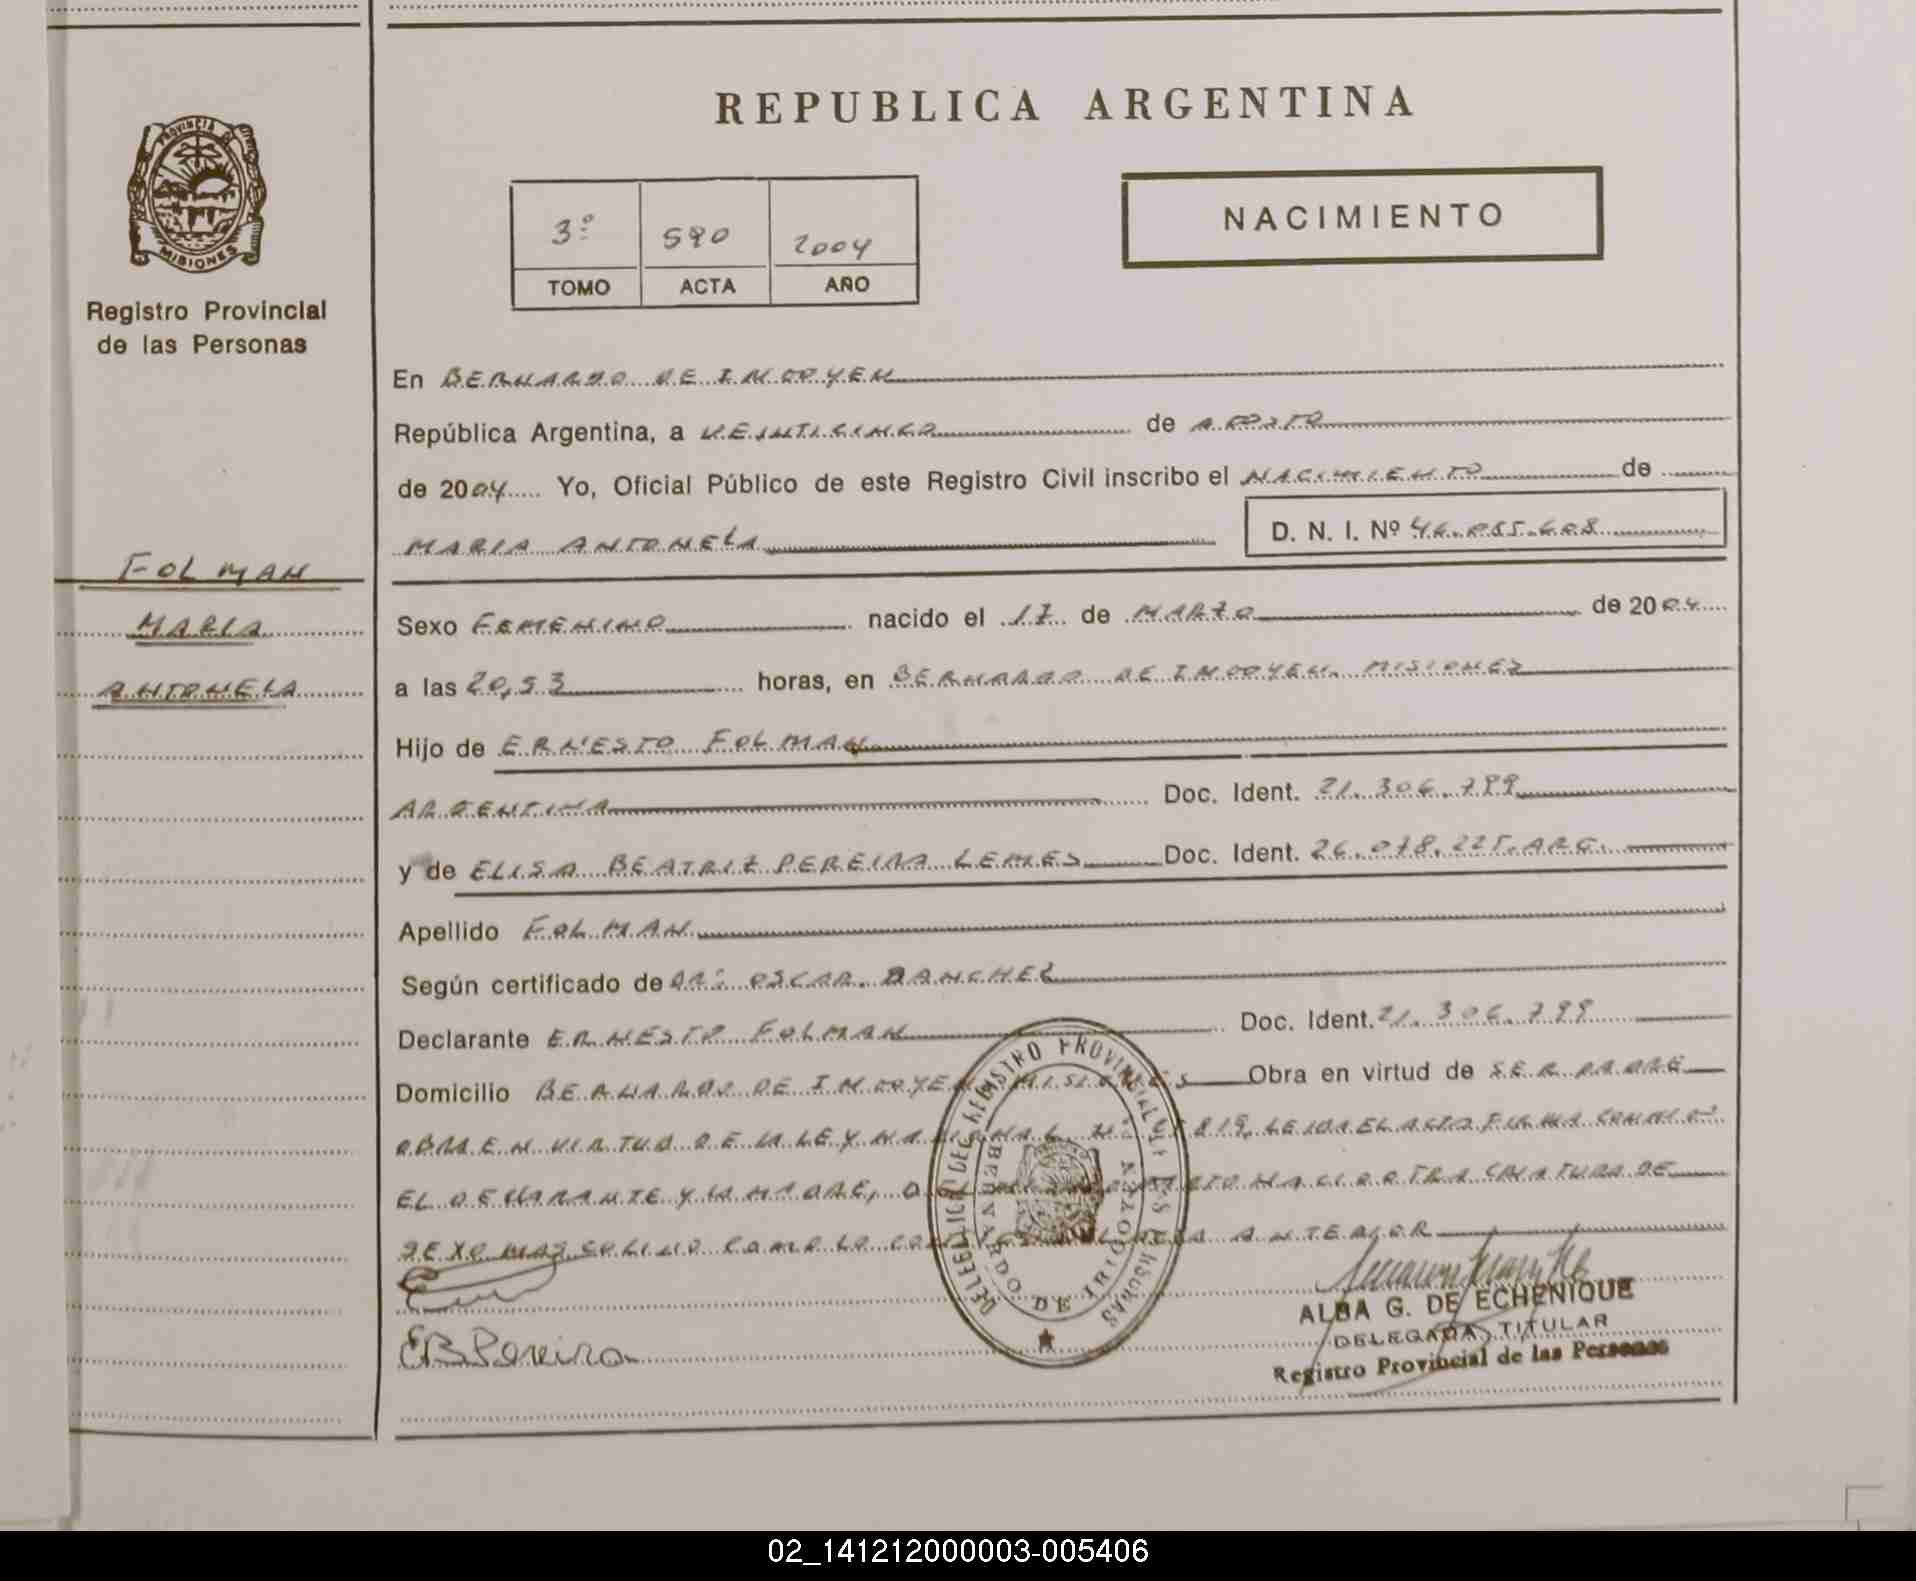 REPUBLICA ARGENTINA
PROVINCIA DE
MISIONES
Registro Provincial
de las Personas
3º 590 2004
TOMO ACTA AÑO
NACIMIENTO
En BERNARDO DE IRIGOYEN
República Argentina, a VEINTICINCO de AGOSTO
de 2004 Yo, Oficial Público de este Registro Civil inscribo el NACIMIENTO de
MARIA ANTONELA D. N. I. Nº 46.055.608
FOLMAN
MARIA
ANTONELA
Sexo FEMENINO nacido el 17 de MARZO de 2004
a las 20,53 horas, en BERNARDO DE IRIGOYEN. MISIONES
Hijo de ERNESTO FOLMAN
ARGENTINA Doc. Ident. 21.306.799
y de ELISA BEATRIZ PEREIRA LEMES Doc. Ident. 26.078.225.ARG.
Apellido FOLMAN
Según certificado de DR. OSCAR SANCHEZ
Declarante ERNESTO FOLMAN Doc. Ident. 21.306.799
Domicilio BERNARDO DE IRIGOYEN MISIONES Obra en virtud de SER PADRE
OBRA EN VIRTUD DE LA LEY NACIONAL Nº LEIDA EL ACTA FIRMA CONMIGO
EL DECLARANTE Y LA MADRE, NACIO OTRA CRIATURA DE
SEXO MASCULINO COMO LO ANTERIOR
DELEGACION DEL REGISTRO PROVINCIAL DE LAS PERSONAS
BERNARDO DE IRIGOYEN
EB Pereira
ALBA G. DE ECHENIQUE
DELEGADA TITULAR
Registro Provincial de las Personas
02_141212000003-005406